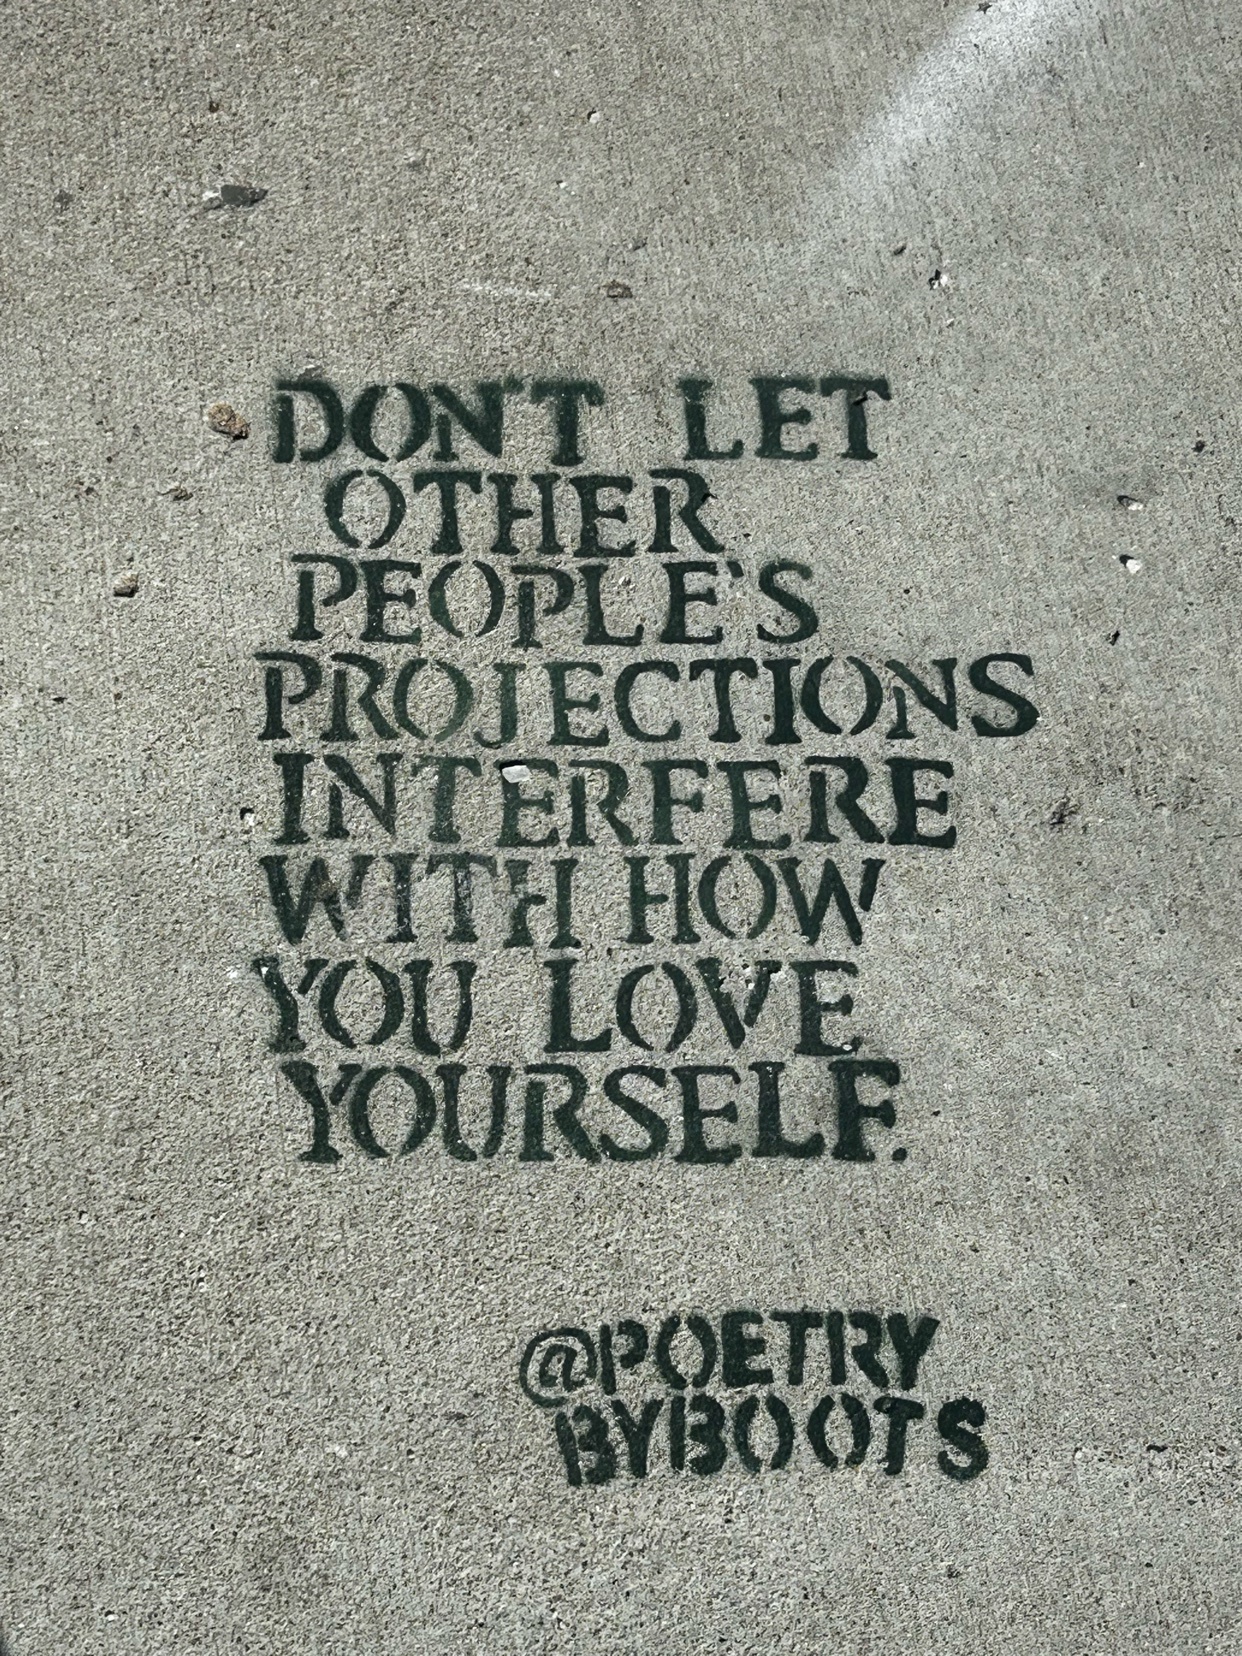 DON'T LET
OTHER
PEOPLE'S
PROJECTIONS
INTERFERE
WITH HOW
YOU LOVE
YOURSELF.
@POETRY
BYBOOTS